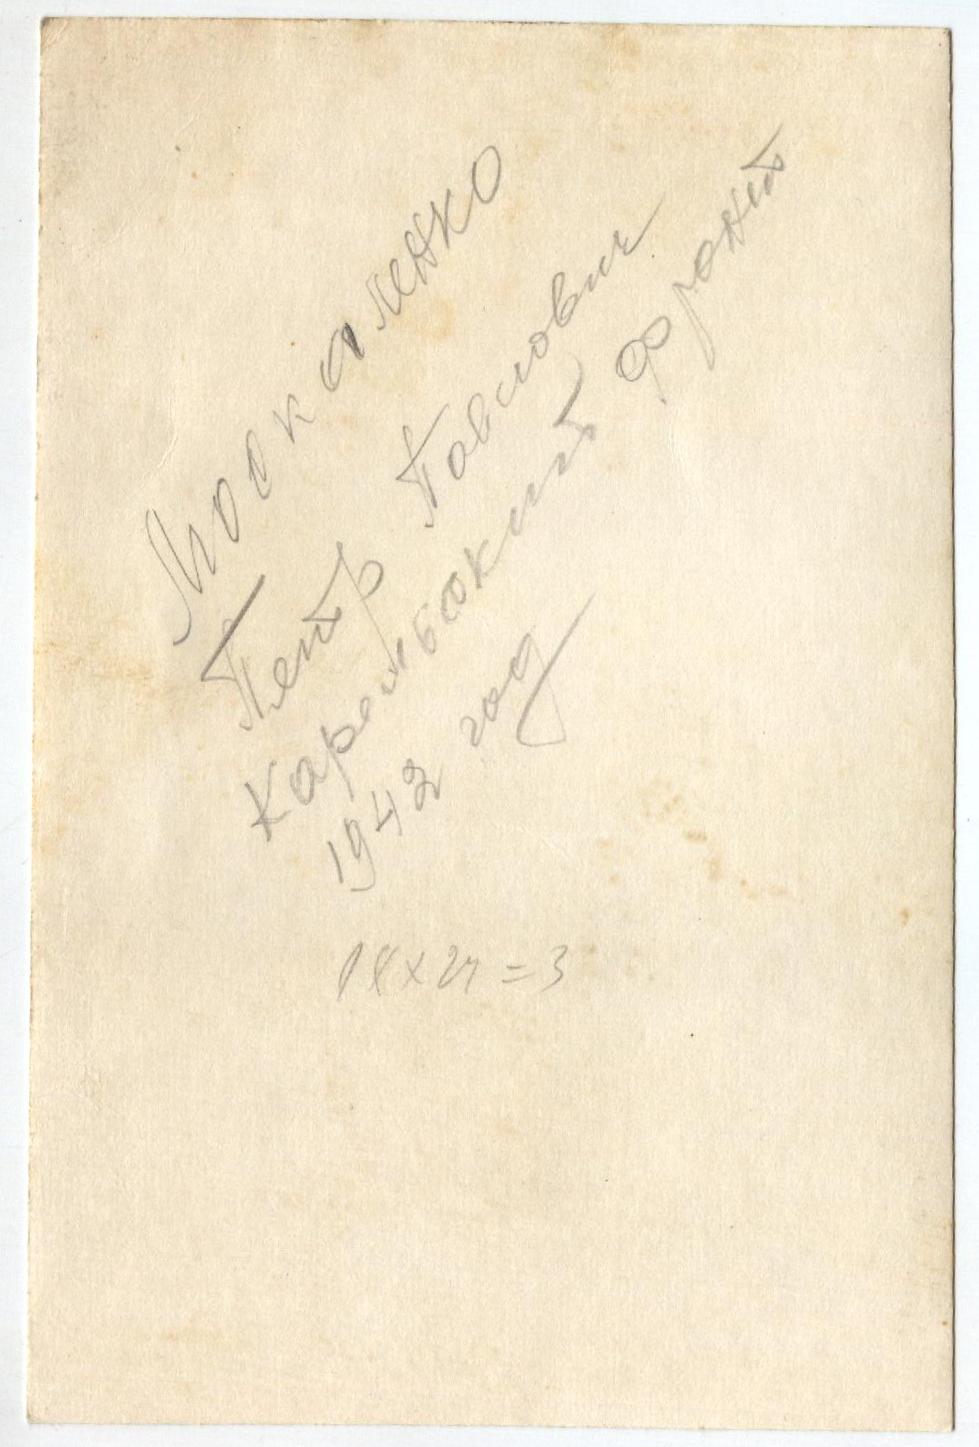 Москаленко
Петр Павлович
Карельский фронт
1942 год
18х24 = 3